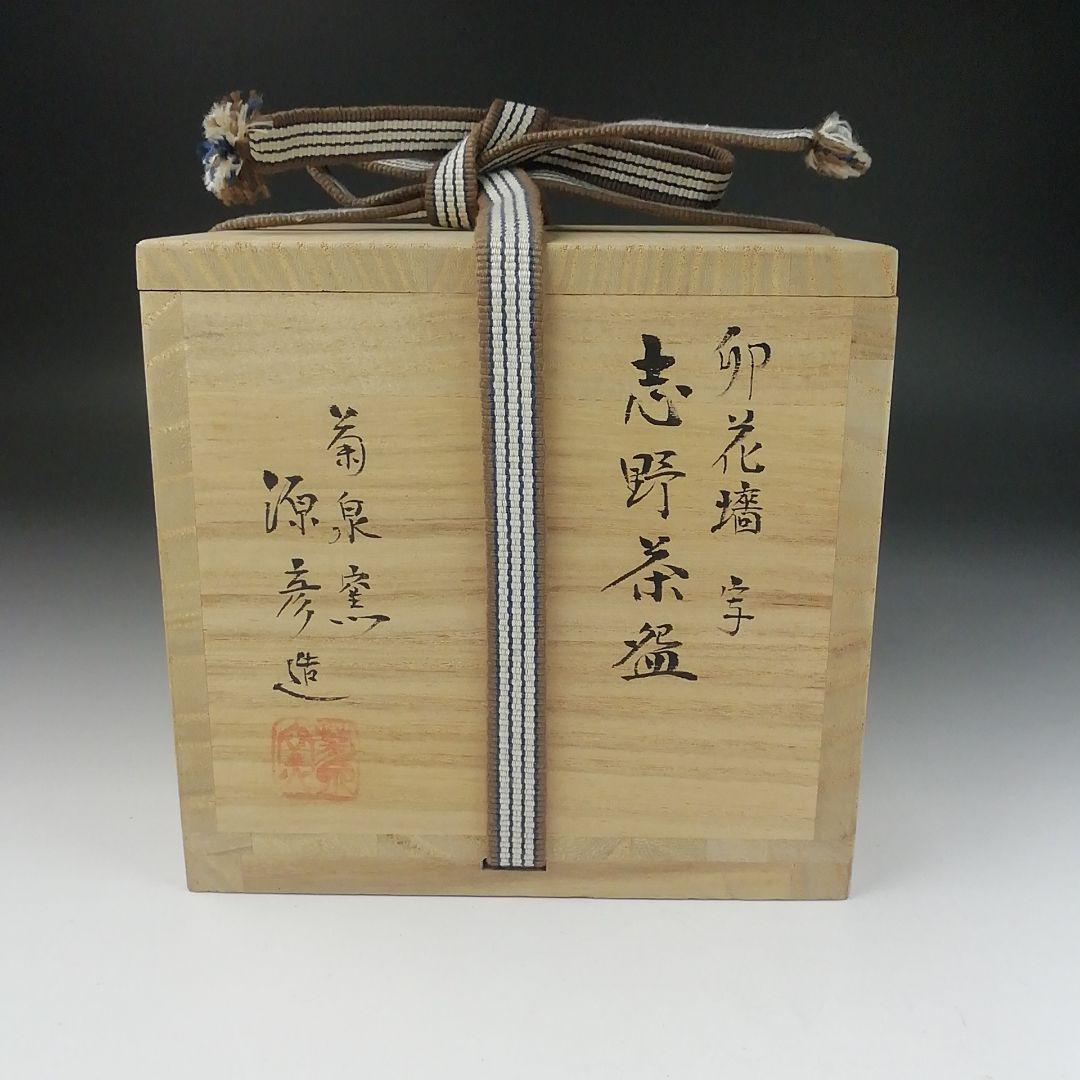 卯花墻 写
志野茶盌
菊泉窯
源彦造